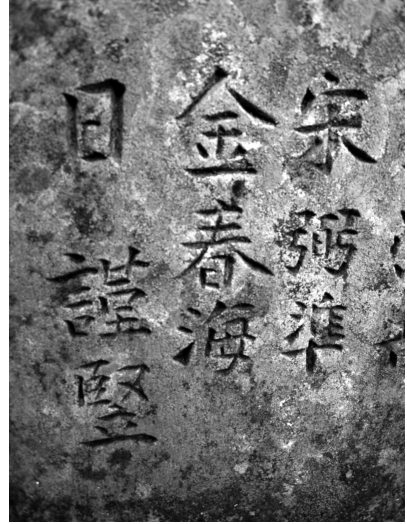 宋弼準
金春海
日謹竪